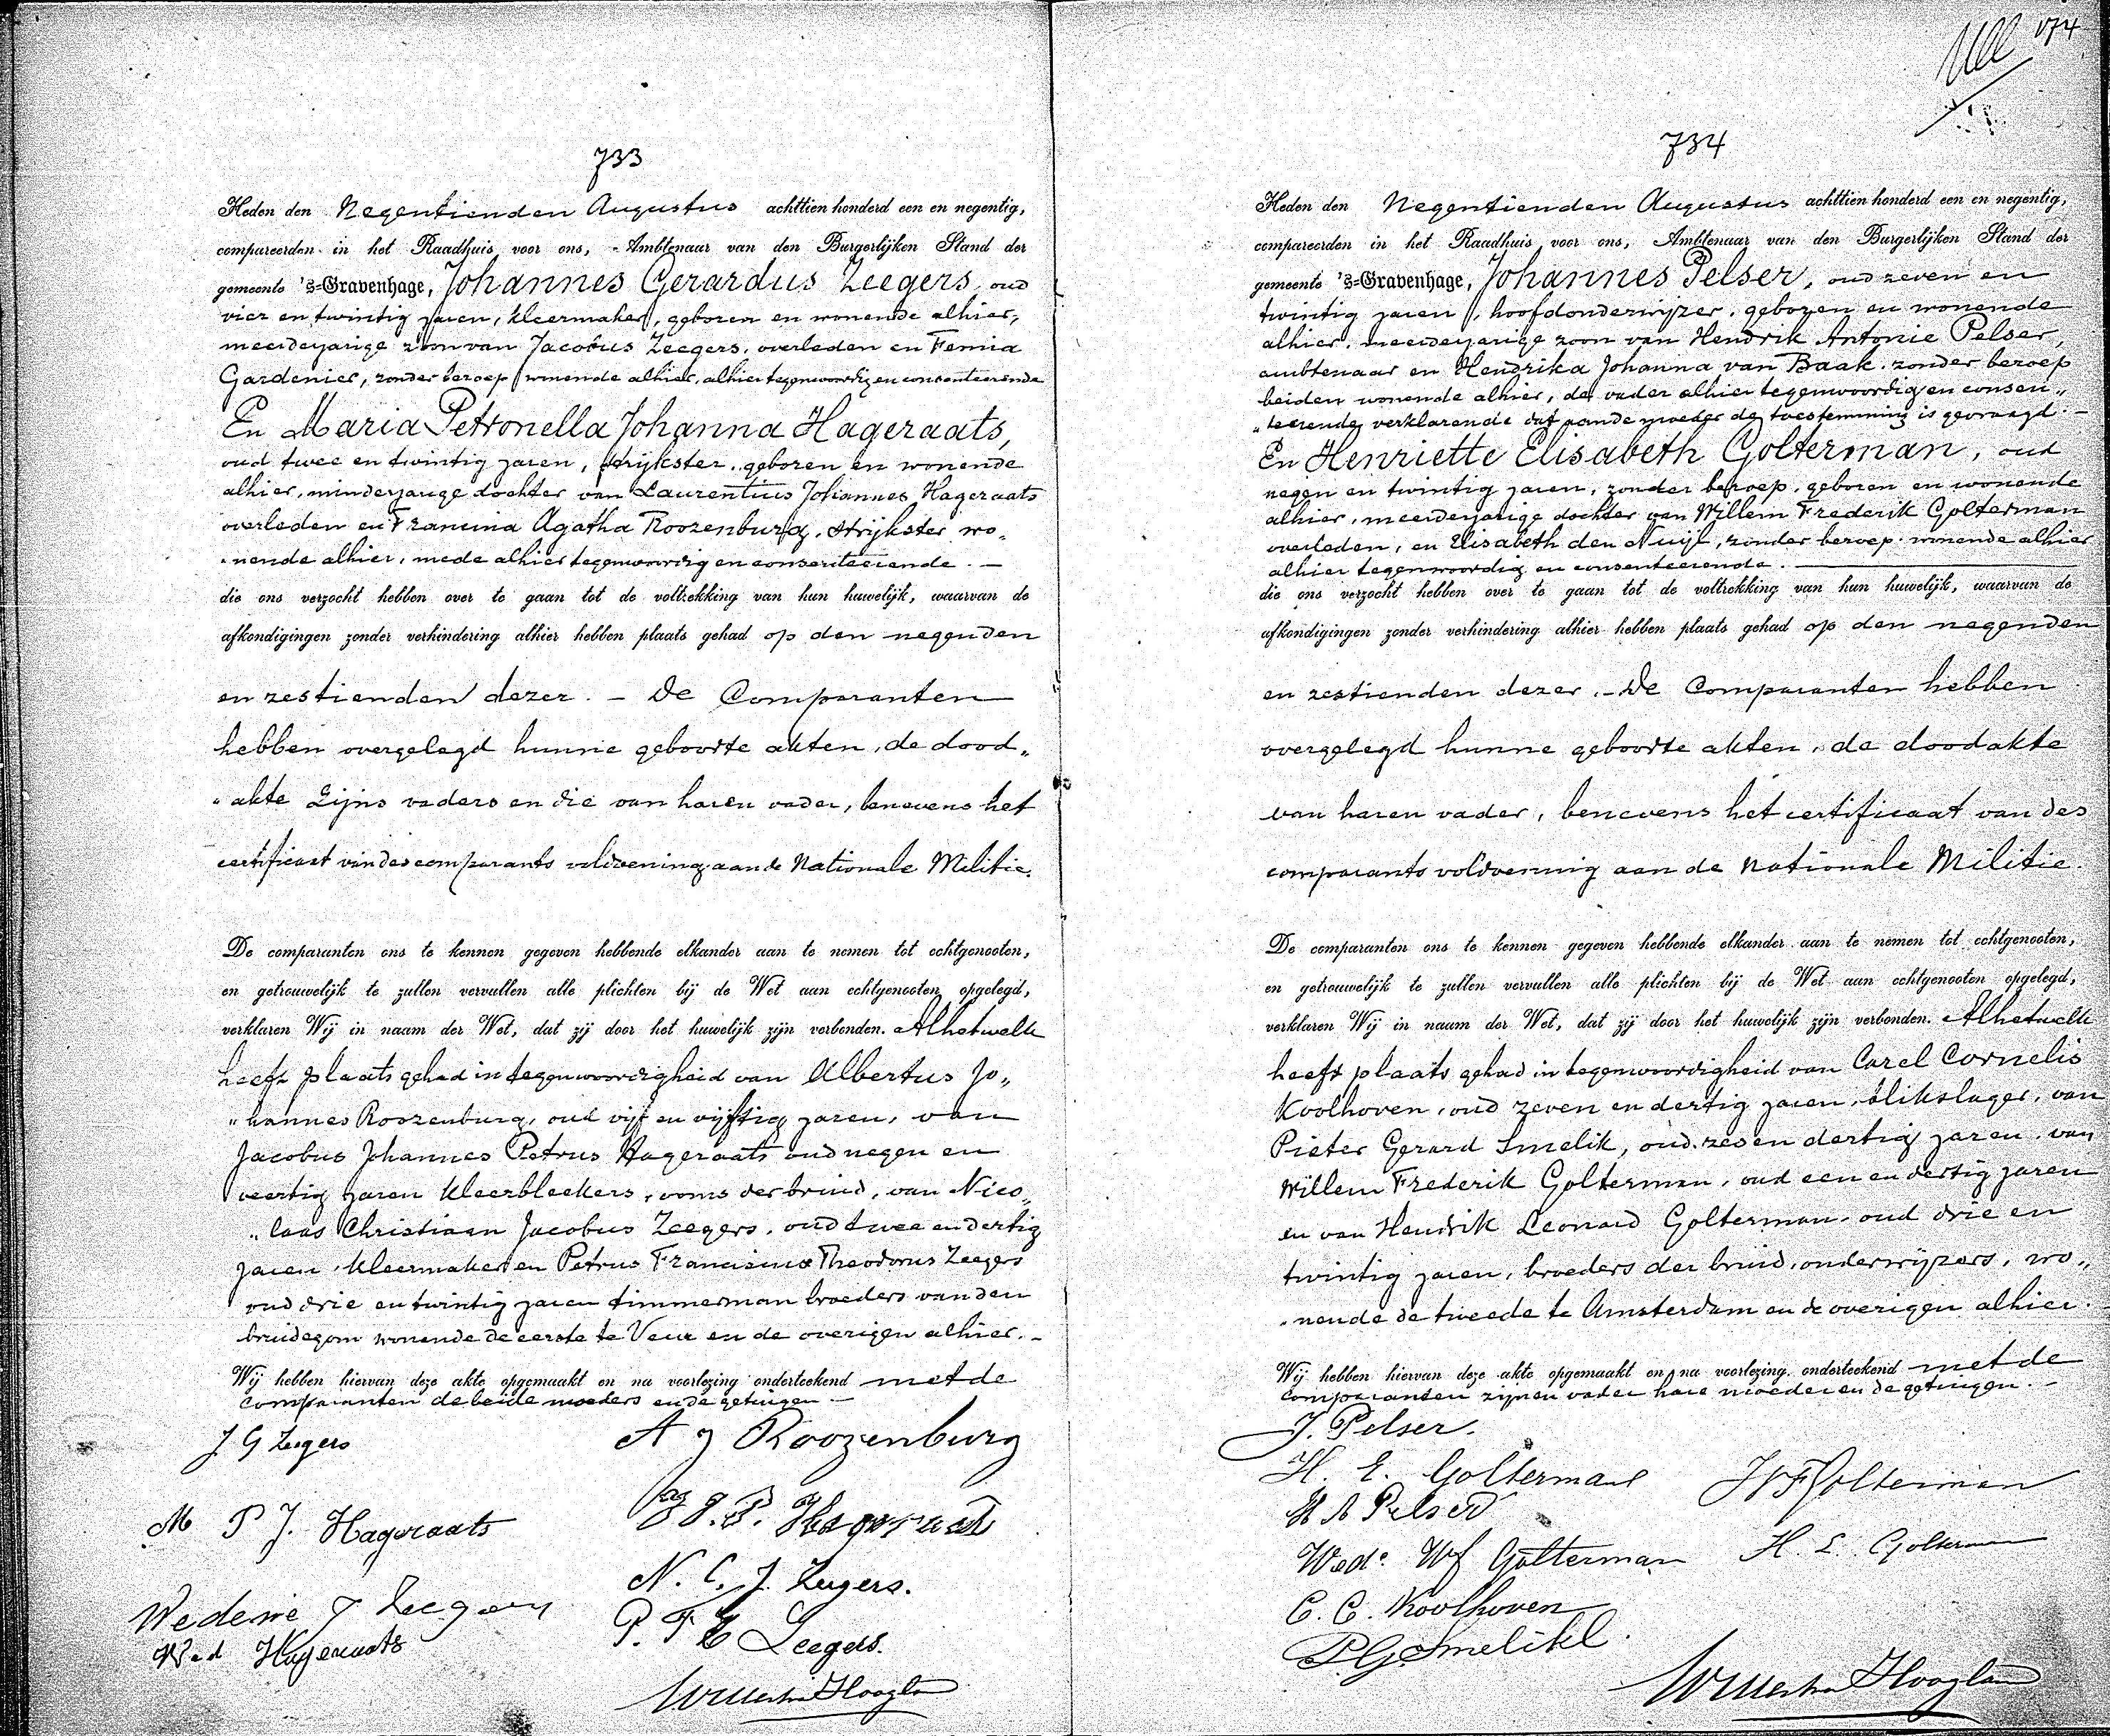 733
Heden den Negentienden Augustus achttien honderd een en negentig,
compareerden in het Raadhuis voor ons, Ambtenaar van den Burgerlijken Stand der
gemeente 's=Gravenhage, Johannes Gerardus Zeegers, oud
vier en twintig jaren, kleermaker, geboren en wonende alhier,
meerderjarige zoon van Jacobus Zeegers, overleden en Femia
Gardenier, zonder beroep wonende alhier, alhier tegenwoordig en consenteerende
En Maria Petronella Johanna Hageraats,
oud twee en twintig jaren, strijkster, geboren en wonende
alhier, minderjarige dochter van Laurentius Johannes Hageraats
overleden en Francina Agatha Roozenburg, strijkster, wo„
„nende alhier, mede alhier tegenwoordig en consenteerende. —
die ons verzocht hebben over te gaan tot de voltrekking van hun huwelijk, waarvan de
afkondigingen zonder verhindering alhier hebben plaats gehad op den negenden
en zestienden dezer. — De Comparanten
hebben overgelegd hunne geboorte akten, de dood„
„akte zijns vaders en die van haren vader, benevens het
certificaat van des comparants voldoening aan de Nationale Militie.
De comparanten ons te kennen gegeven hebbende elkander aan te nemen tot echtgenooten,
en getrouwelijk te zullen vervullen alle plichten bij de Wet aan echtgenooten opgelegd,
verklaren Wij in naam der Wet, dat zij door het huwelijk zijn verbonden. Alhetwelk
heeft plaats gehad in tegenwoordigheid van Albertus Jo„
„hannes Roozenburg, oud vijf en vijftig jaren, van
Jacobus Johannes Petrus Hageraats oud negen en
veertig jaren kleerbleekers, ooms der bruid, van Nico„
„laas Christiaan Jacobus Zeegers, oud twee en dertig
jaren, kleermaker en Petrus Franciscus Theodorus Zeegers
oud drie en twintig jaren timmerman broeders van den
bruidegom wonende de eerste te Veur en de overigen alhier. —
Wij hebben hiervan deze akte opgemaakt en na voorlezing onderteekend met de
comparanten de beide moeders en de getuigen —
J G Zeegers
A J Roozenburg
M P J. Hageraats
J J. P. Hageraats
N. C. J. Zeegers.
Wedewe J Zeegers
P. F. T Zeegers.
Wed Hageraats
174
734
Heden den Negentienden Augustus achttien honderd een en negentig,
compareerden in het Raadhuis voor ons, Ambtenaar van den Burgerlijken Stand der
gemeente 's=Gravenhage, Johannes Pelser, oud zeven en
twintig jaren, hoofdonderwijzer, geboren en wonende
alhier, meerderjarige zoon van Hendrik Antonie Pelser,
ambtenaar en Hendrika Johanna van Baak, zonder beroep
beiden wonende alhier, de vader alhier tegenwoordig en consen„
„teerende, verklarende dat aan de moeder de toestemming is gevraagd. —
En Henriette Elisabeth Golterman, oud
negen en twintig jaren, zonder beroep, geboren en wonende
alhier, meerderjarige dochter van Willem Frederik Golterman
overleden, en Elisabeth den Nuijl, zonder beroep, wonende alhier
alhier tegenwoordig en consenteerende. —
die ons verzocht hebben over te gaan tot de voltrekking van hun huwelijk, waarvan de
afkondigingen zonder verhindering alhier hebben plaats gehad op den negenden
en zestienden dezer. — De Comparanten hebben
overgelegd hunne geboorte akten, de doodakte
van haren vader, benevens het certificaat van des
comparants voldoening aan de Nationale Militie.
De comparanten ons te kennen gegeven hebbende elkander aan te nemen tot echtgenooten,
en getrouwelijk te zullen vervullen alle plichten bij de Wet aan echtgenooten opgelegd,
verklaren Wij in naam der Wet, dat zij door het huwelijk zijn verbonden. Alhetwelk
heeft plaats gehad in tegenwoordigheid van Carel Cornelis
Koolhoven, oud zeven en dertig jaren, blikslager, van
Pieter Gerard Smelik, oud zes en dertig jaren, van
Willem Frederik Golterman, oud een en dertig jaren
en van Hendrik Leonard Golterman, oud drie en
twintig jaren, broeders der bruid, onderwijzers, wo„
„nende de tweede te Amsterdam en de overigen alhier.
Wij hebben hiervan deze akte opgemaakt en na voorlezing onderteekend met de
comparanten zijnen vader hare moeder en de getuigen. —
J. Pelser.
H. E. Golterman
W F Golterman
H A Pelser
Wed.e W f Golterman
H. L. Golterman
C. C. Koolhoven
P. G. Smelik.